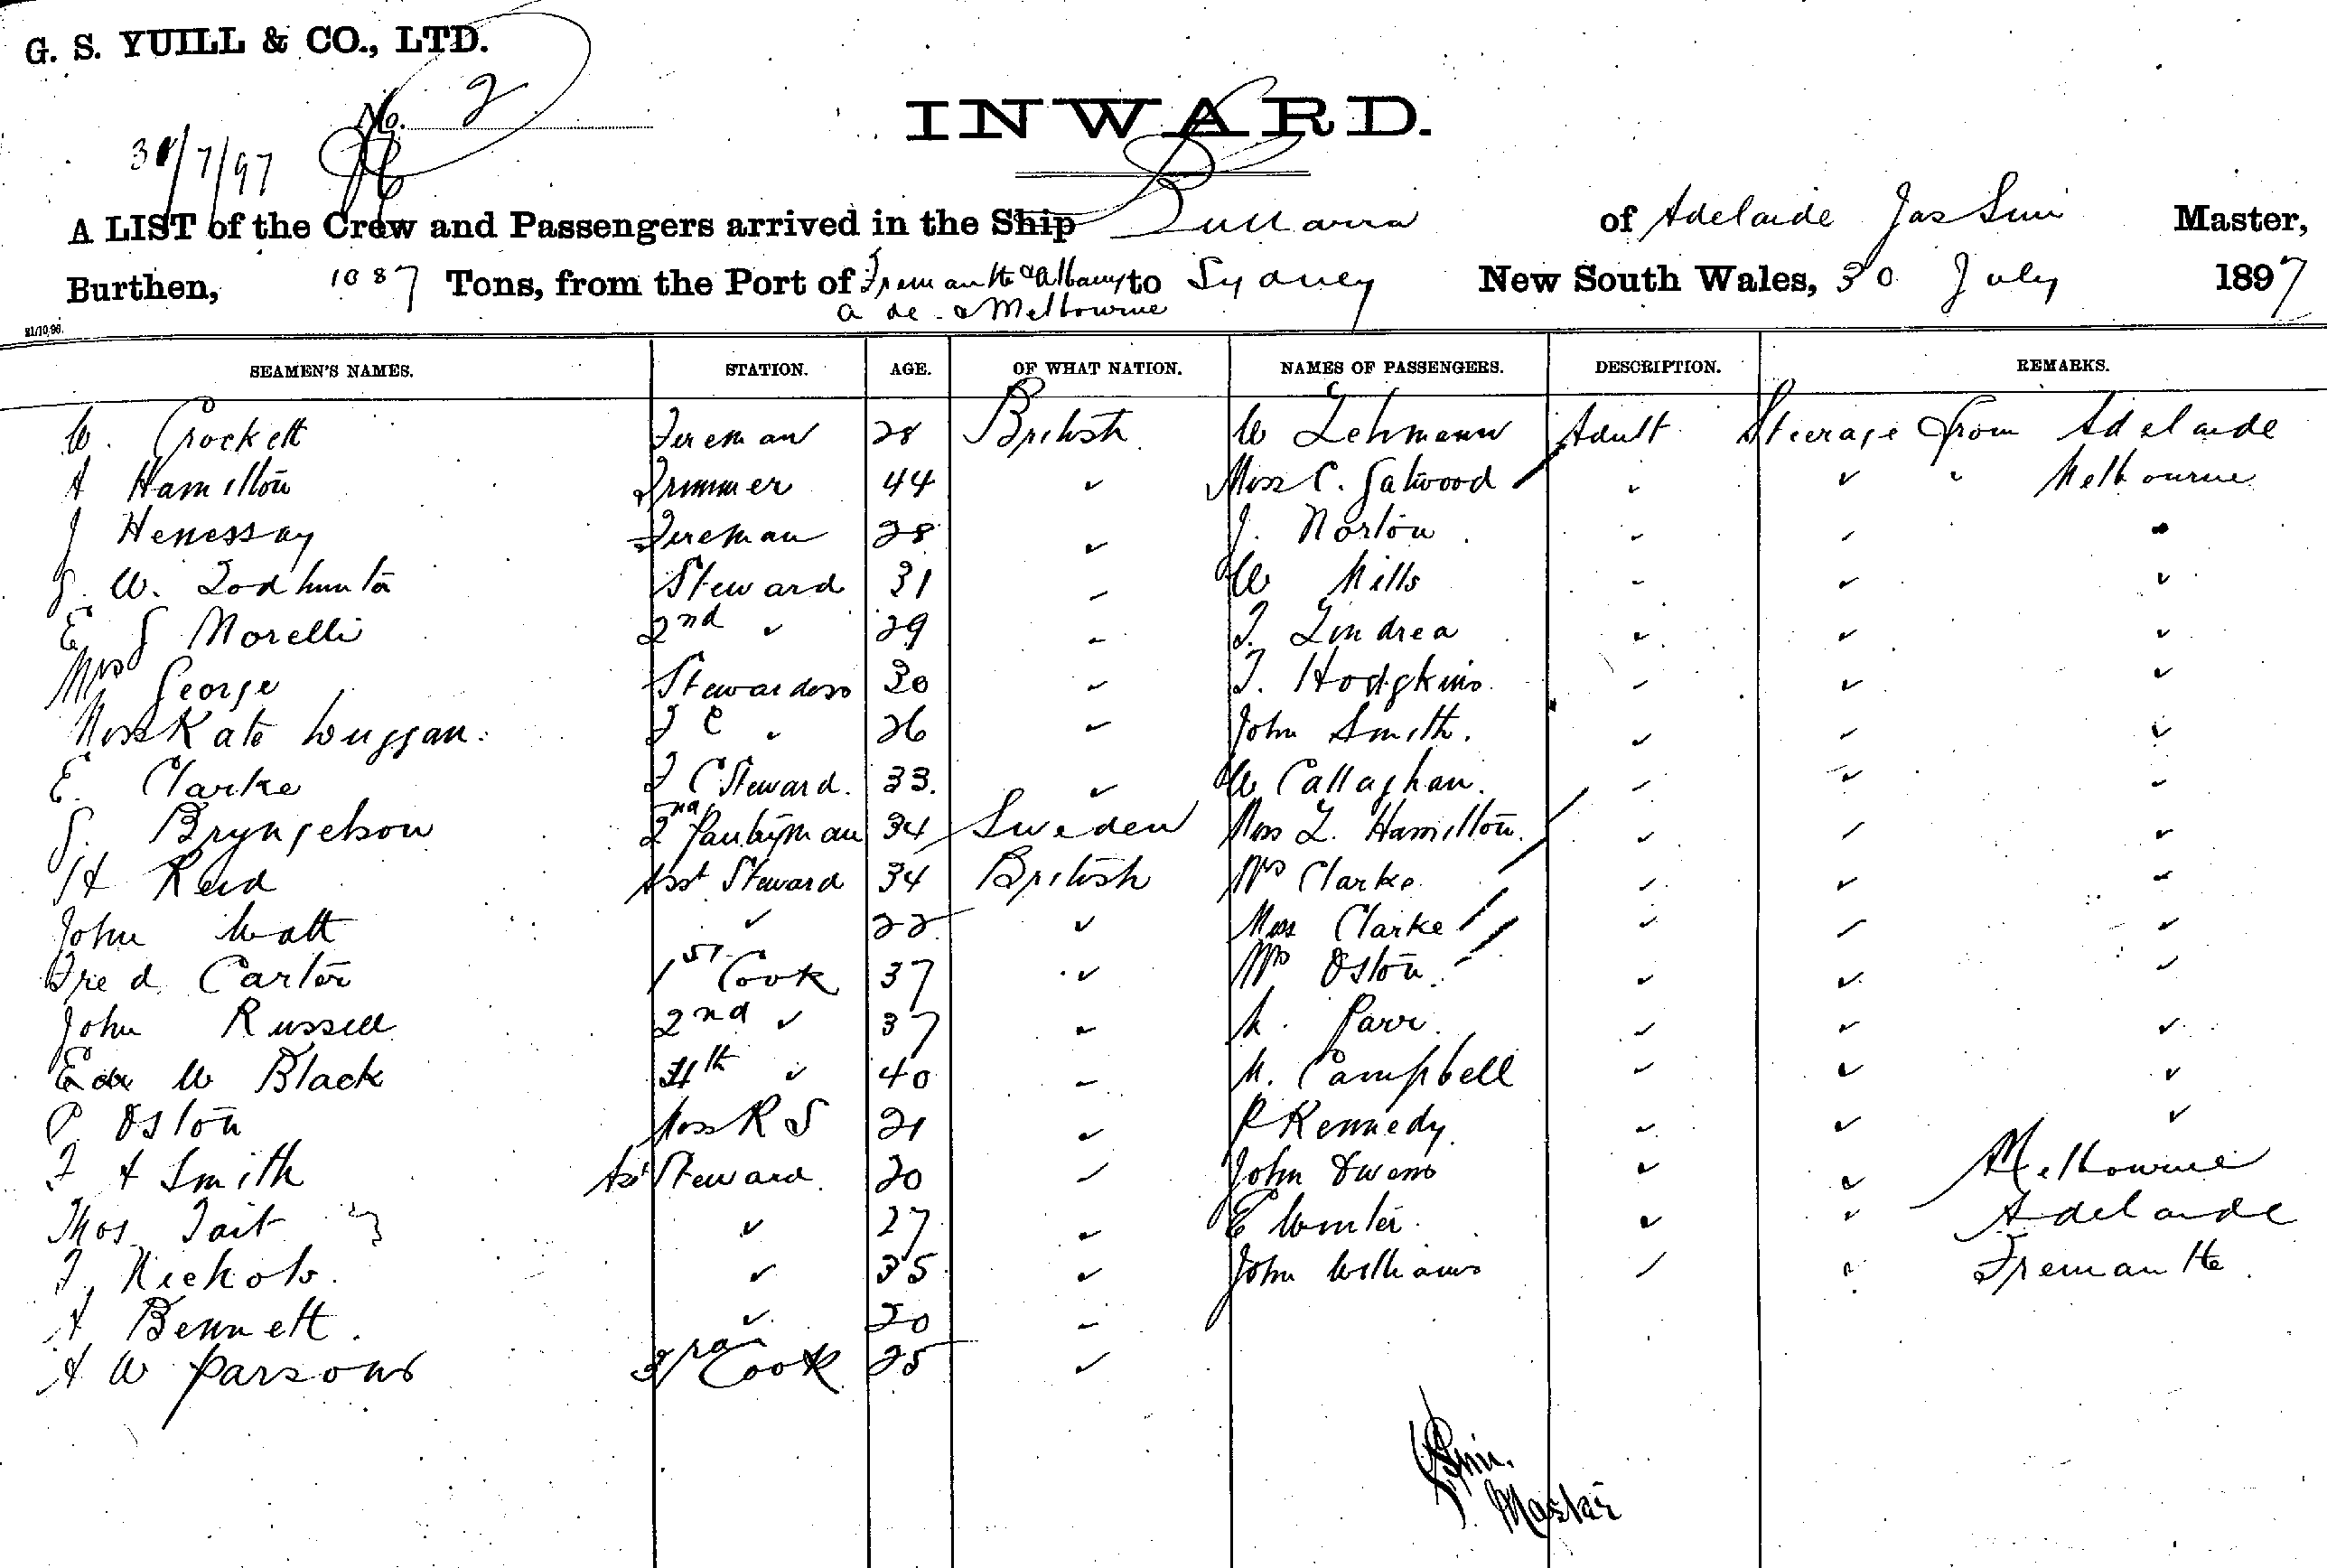 G. S. YUILL & CO., LTD.
No. 2
INWARD.
30/7/97
A LIST of the Crew and Passengers arrived in the Ship Bullarra of Adelaide Jas Sim Master,
Burthen, 1087 Tons, from the Port of Fremantle & Albany to Sydney New South Wales, 30 July 1897
a de & Melbourne
21/10/96.
SEAMEN'S NAMES. STATION. AGE. OF WHAT NATION. NAMES OF PASSENGERS. DESCRIPTION. REMARKS.
W. Crockett Fireman 28 British W Lehmann Adult Steerage from Adelaide
A Hamilton Trimmer 44 " Miss C. Gatwood " " " Melbourne
J Henessay Fireman 28 " J. Norton " " "
G. W. Todhunter Steward 31 " W Mills " " "
E G Morelli 2nd " 29 " T. Lindrea " " "
Mrs George Stewardess 30 " T. Hodgkins " " "
Miss Kate Duggan F C " 26 " John Smith " " "
E. Clarke F C Steward 33 " W Callaghan " " "
G. Bryngelson 2nd Pantryman 34 Sweden Miss L. Hamilton " " "
H Reid Asst Steward 34 British Mrs Clarke " " "
John Watt " 22 " Miss Clarke " " "
Fred Carter 1st Cook 37 " Mrs Oston " " "
John Russell 2nd " 37 " M. Parr " " "
Edw W Black 4th " 40 " M. Campbell " " "
P. Oston Mess R S 21 " P Kennedy " " "
F A Smith Ast Steward 20 " John Owens " " Melbourne
Thos Tait " 27 " E Winter " " Adelaide
F. Nichols " 35 " John Williams " " Fremantle
A Bennett " 20 "
A W Parsons 3rd Cook 25 "
J Sim.
Master